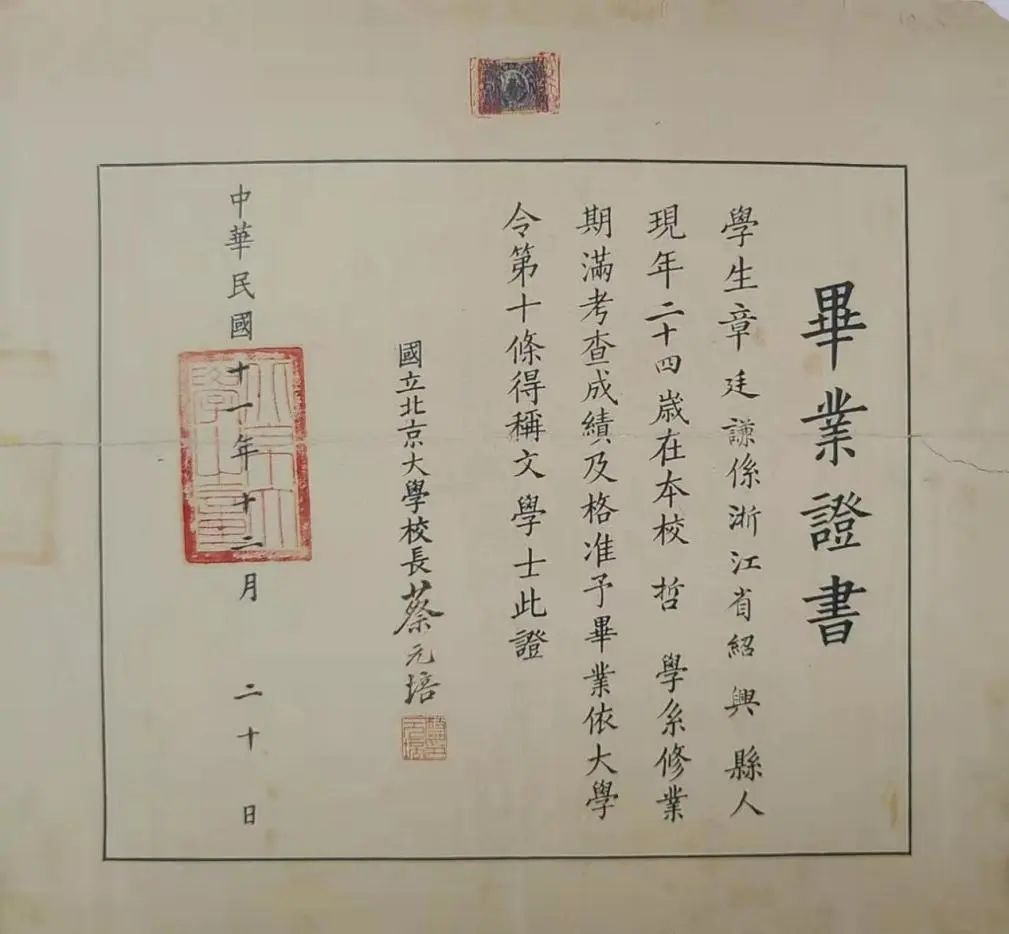 畢業證書
學生章廷謙係浙江省紹興縣人
現年二十四歲在本校哲學系修業
期滿考查成績及格准予畢業依大學
令第十條得稱文學士此證
國立北京大學校長蔡元培
中華民國十一年十二月二十日